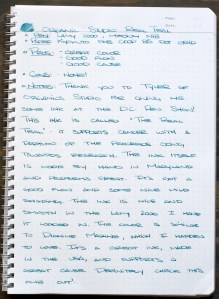 Organics Studio Real Teal
• Pen: Lamy 2000, Medium Nib
• Paper: Rhodia
• Pros: - Great Color
- Good Flow
- Good Cause
• Cons: - None!
• Notes: Thank you to Tyler of
Organics Studio for giving me
some ink at the DC Pen Show!
This ink is called "The Real
Teal". It supports cancer with a
portion of the proceeds going
towards research. This ink itself
is
and performs great. It's got a
good flow and some nice wild
shading. The ink is nice and
smooth in the Lamy 2000 I have
it loaded in. This color is similar
to Diamine Marine, which I happened
to love. It's a great ink, made
in the USA, and supports a
great cause. Definitely check this
out!